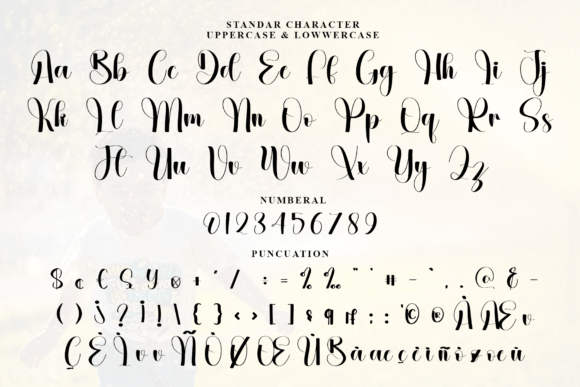 STANDAR CHARACTER
UPPERCASE & LOWWERCASE
Aa Bb Cc Dd Ee Ff Gg Hh Ii Jj
Kk Ll Mm Nn Oo Pp Qq Rr Ss
Tt Uu Vv Ww Xx Yy Zz
NUMBERAL
0123456789
PUNCUATION
$ ¢ € Ş ¥ ¤ + / : = % ‰ # - . . @ & -
( ) ¿ ? ¡ ! \ { } < > [ ] § ¶ : : © ® À Æ
Ç È Ì Ñ Ò Ø Œ Ù ß à æ ç è ì ñ ò ø œ ù